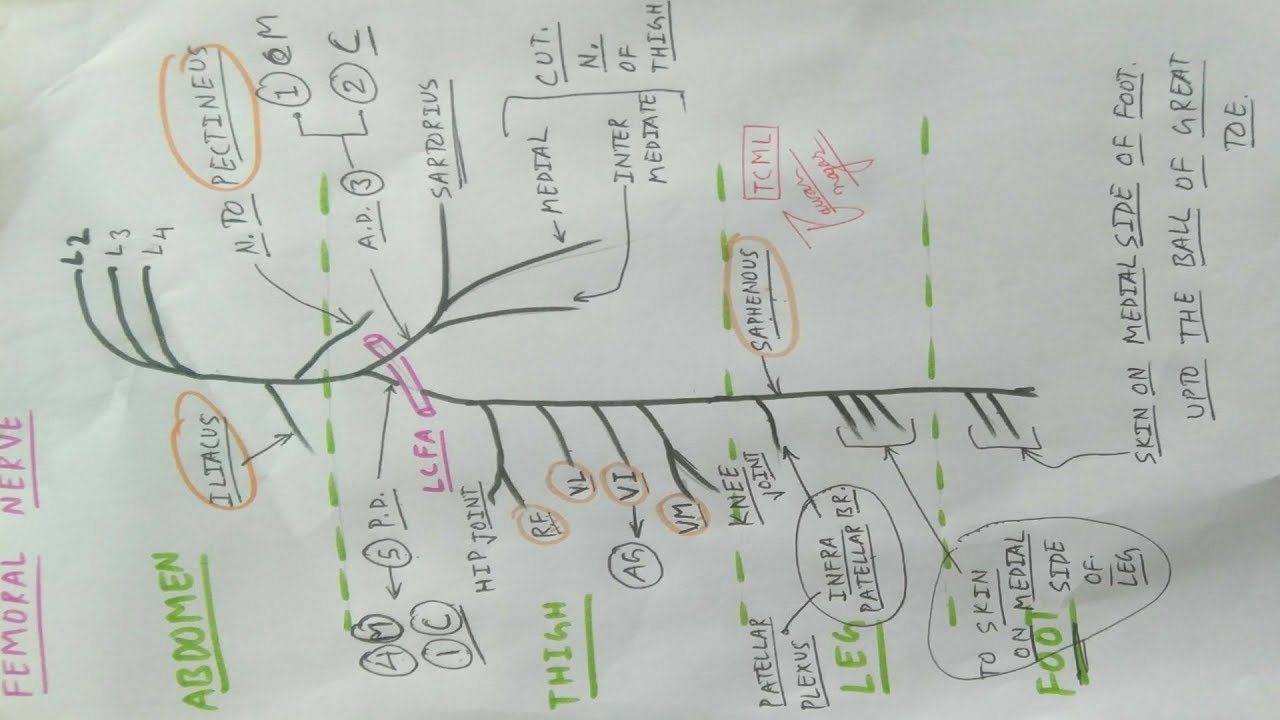 FEMORAL NERVE
ABDOMEN
L2
L3
L4
ILIACUS
N. TO PECTINEUS
A.D. 3
1 M
2 C
SARTORIUS
4 M
1 C
5 P.D.
LCFA
THIGH
HIP JOINT
RF
VL
AG
VI
VM
KNEE
JOINT
MEDIAL
INTER
MEDIATE
CUT.
N.
OF
THIGH
LEG
PATELLAR
PLEXUS
INFRA
PATELLAR BR.
SAPHENOUS
TCML
FOOT
TO SKIN
ON MEDIAL
SIDE
OF
LEG
SKIN ON MEDIAL SIDE OF FOOT.
UPTO THE BALL OF GREAT
TOE.